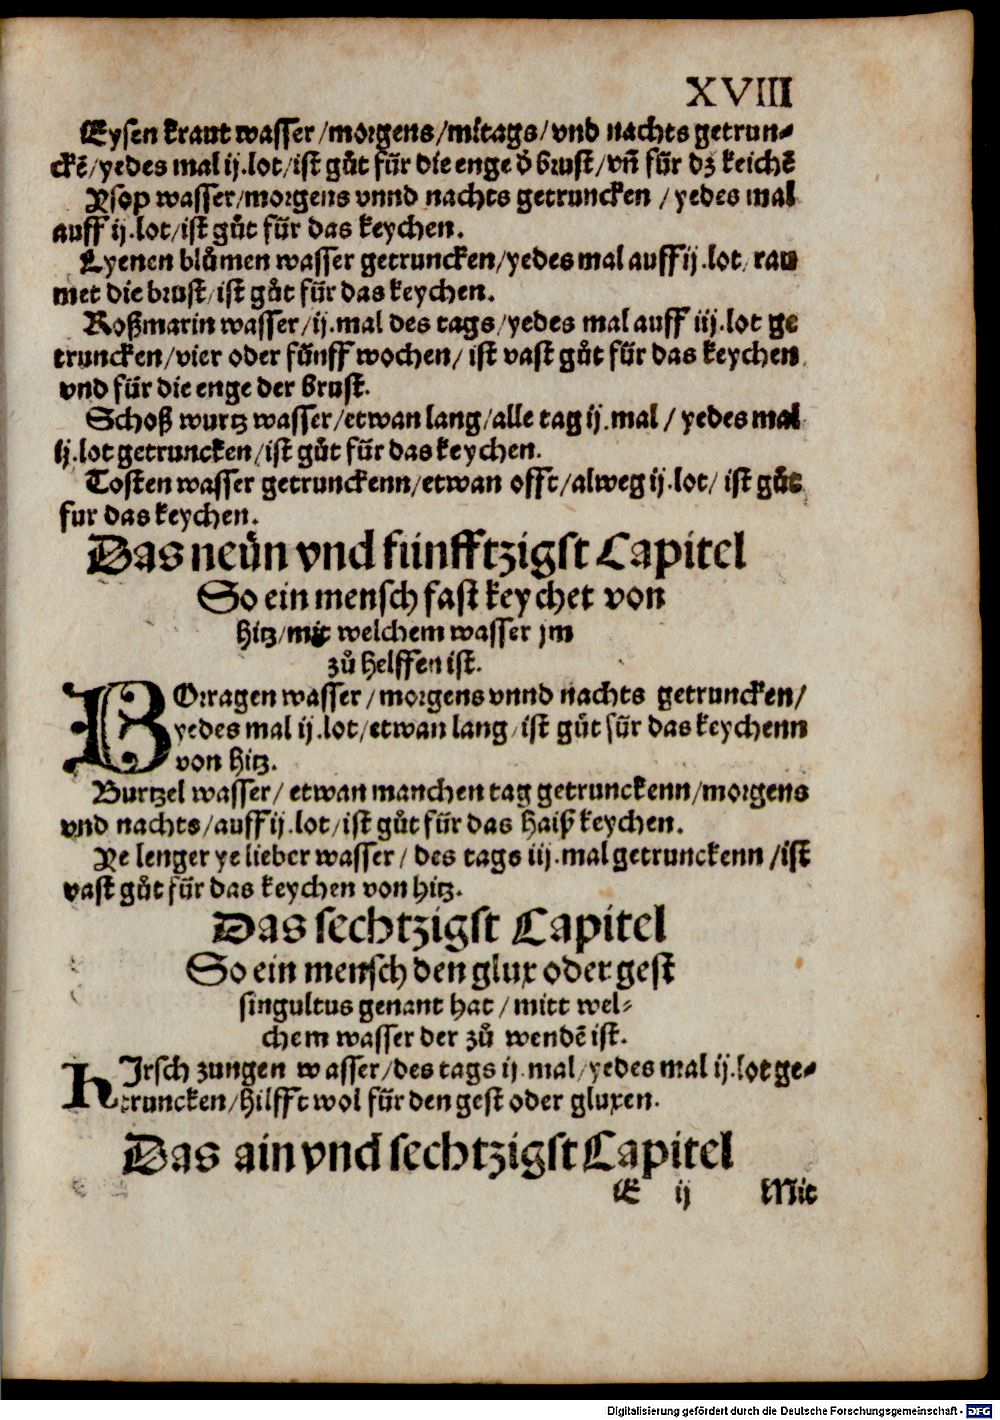 XVIII
Eysen kraut wasser/morgens/mitags/vnd nachts getrun-
ckē/yedes mal ij.lot/ist gůt für die enge d̕ brust/vñ für dz keichē
Ysop wasser/morgens vnnd nachts getruncken / yedes mal
auff ij.lot/ist gůt für das keychen.
Lyenen blůmen wasser getruncken/yedes mal auff ij.lot/rau
met die brust/ist gůt für das keychen.
Roßmarin wasser/ij.mal des tags/yedes mal auff iij.lot ge
truncken/vier oder fünff wochen/ ist vast gůt für das keychen
vnd für die enge der brust.
Schoß wurtz wasser/etwan lang/alle tag ij.mal / yedes mal
ij.lot getruncken/ist gůt für das keychen.
Tosten wasser getrunckenn/etwan offt/alweg ij.lot/ ist gůt
fur das keychen.
Das neün vnd fünfftzigst Capitel
So ein mensch fast keychet von
hitz/mit welchem wasser jm
zů helffen ist.
BOrragen wasser/morgens vnnd nachts getruncken/
yedes mal ij.lot/etwan lang/ist gůt für das keychenn
von hitz.
Burtzel wasser/ etwan manchen tag getrunckenn/morgens
vnd nachts/auff ij.lot/ist gůt für das haiß keychen.
Ye lenger ye lieber wasser/ des tags iij.mal getrunckenn/ist
vast gůt für das keychen von hitz.
Das sechtzigst Capitel
So ein mensch den glux oder gest
singultus genant hat/mitt wel-
chem wasser der zů wendē ist.
HIrsch zungen wasser/des tags ij.mal/yedes mal ij.lot ge-
truncken/hilfft wol für den gest oder gluxen.
Das ain vnd sechtzigst Capitel
E ij Mit
Digitalisierung gefördert durch die Deutsche Forschungsgemeinschaft - DFG